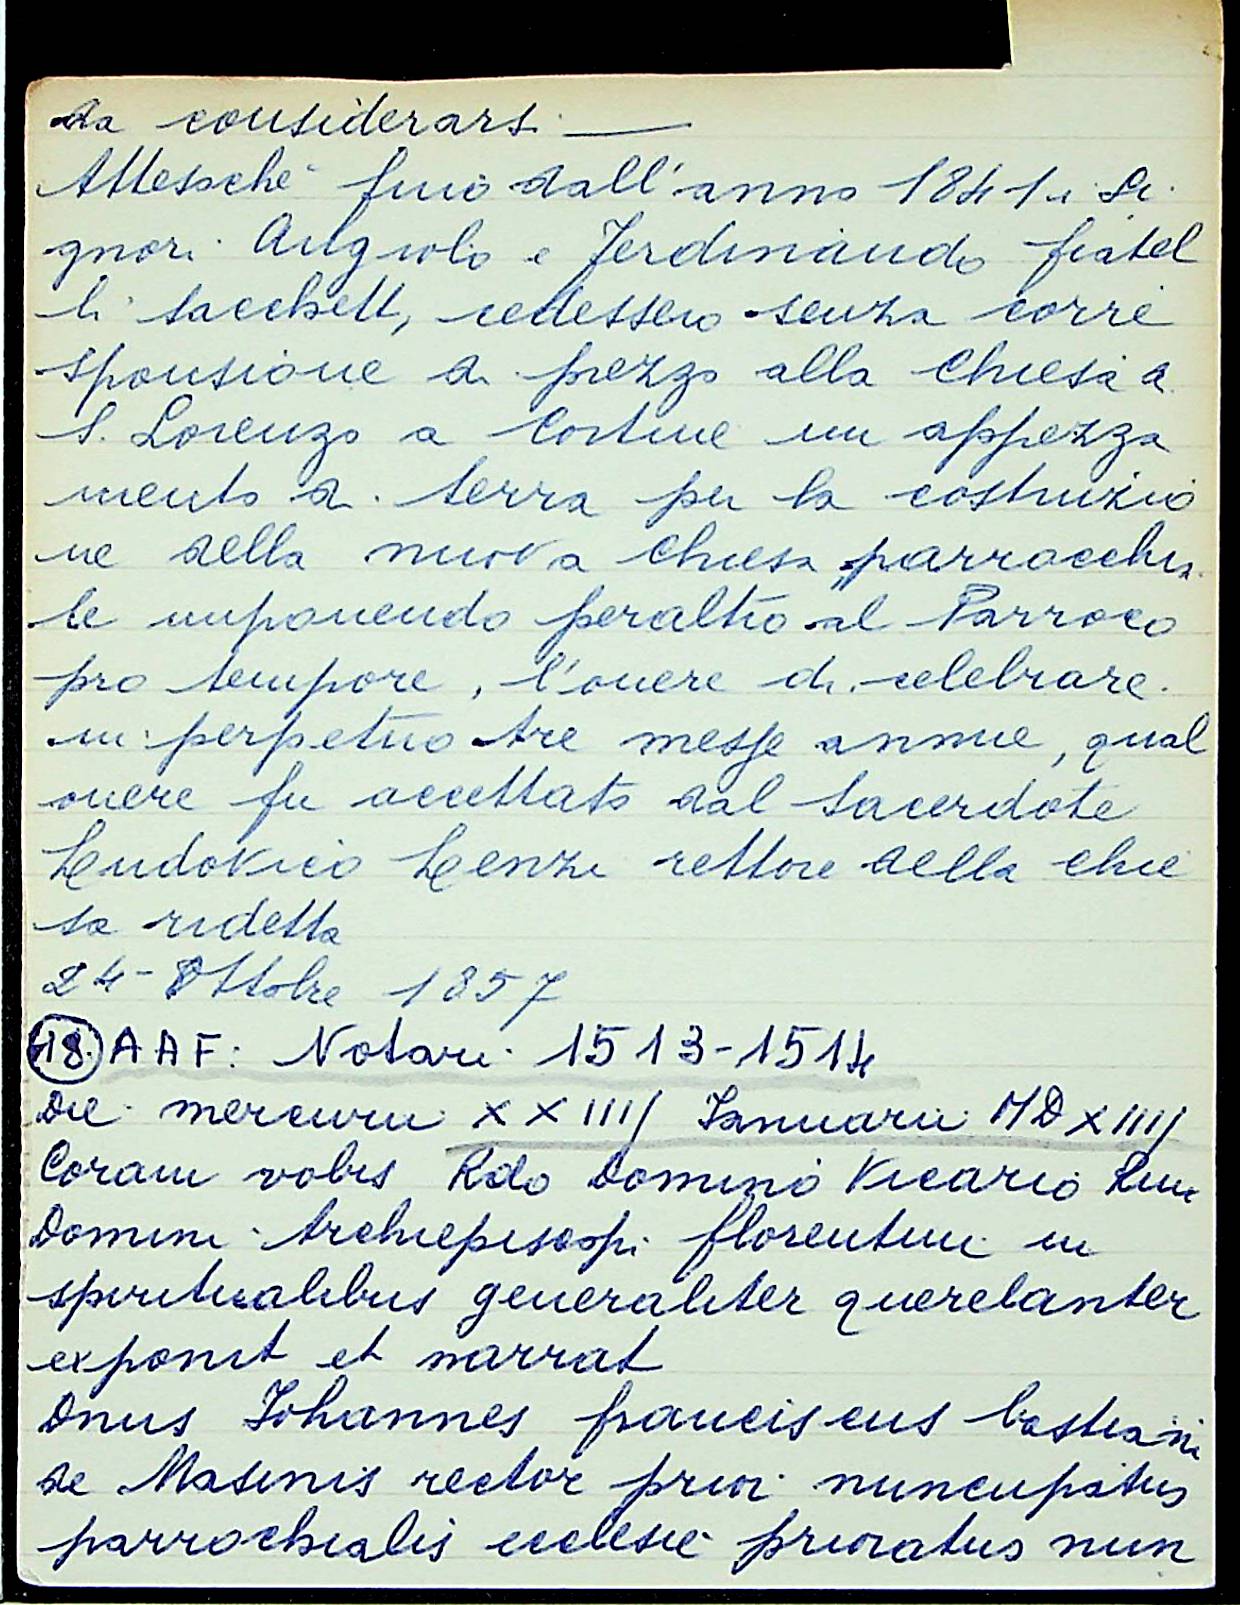 da considerarsi —
Attesoché fino dall'anno 1841 i Si
gnori Angiolo e Ferdinando fratel
li Sacchetti, cedessero senza corre
sponsione di prezzo alla Chiesa di
S. Lorenzo a Cortine un appezza
mento di terra per la costruzio
ne della nuova Chiesa parrocchia
le imponendo peraltro al Parroco
pro tempore, l'onere di celebrare
in perpetuo tre messe annue, qual
onere fu accettato dal Sacerdote
Ludovico Lenzi rettore della chie
sa ridetta
24 - Ottobre 1857
18. AAF: Notari 1513-1514
Die mercurii XXIIII Ianuarii MDXIIII
Coram vobis Rdo Domino Vicario Rmi
Domini Archiepiscopi florentini in
spiritualibus generaliter querelanter
exponit et narrat
Dnus Iohannes franciscus bastiani
de Masinis rector prior nuncupatus
parrochialis ecclesie prioratus nun